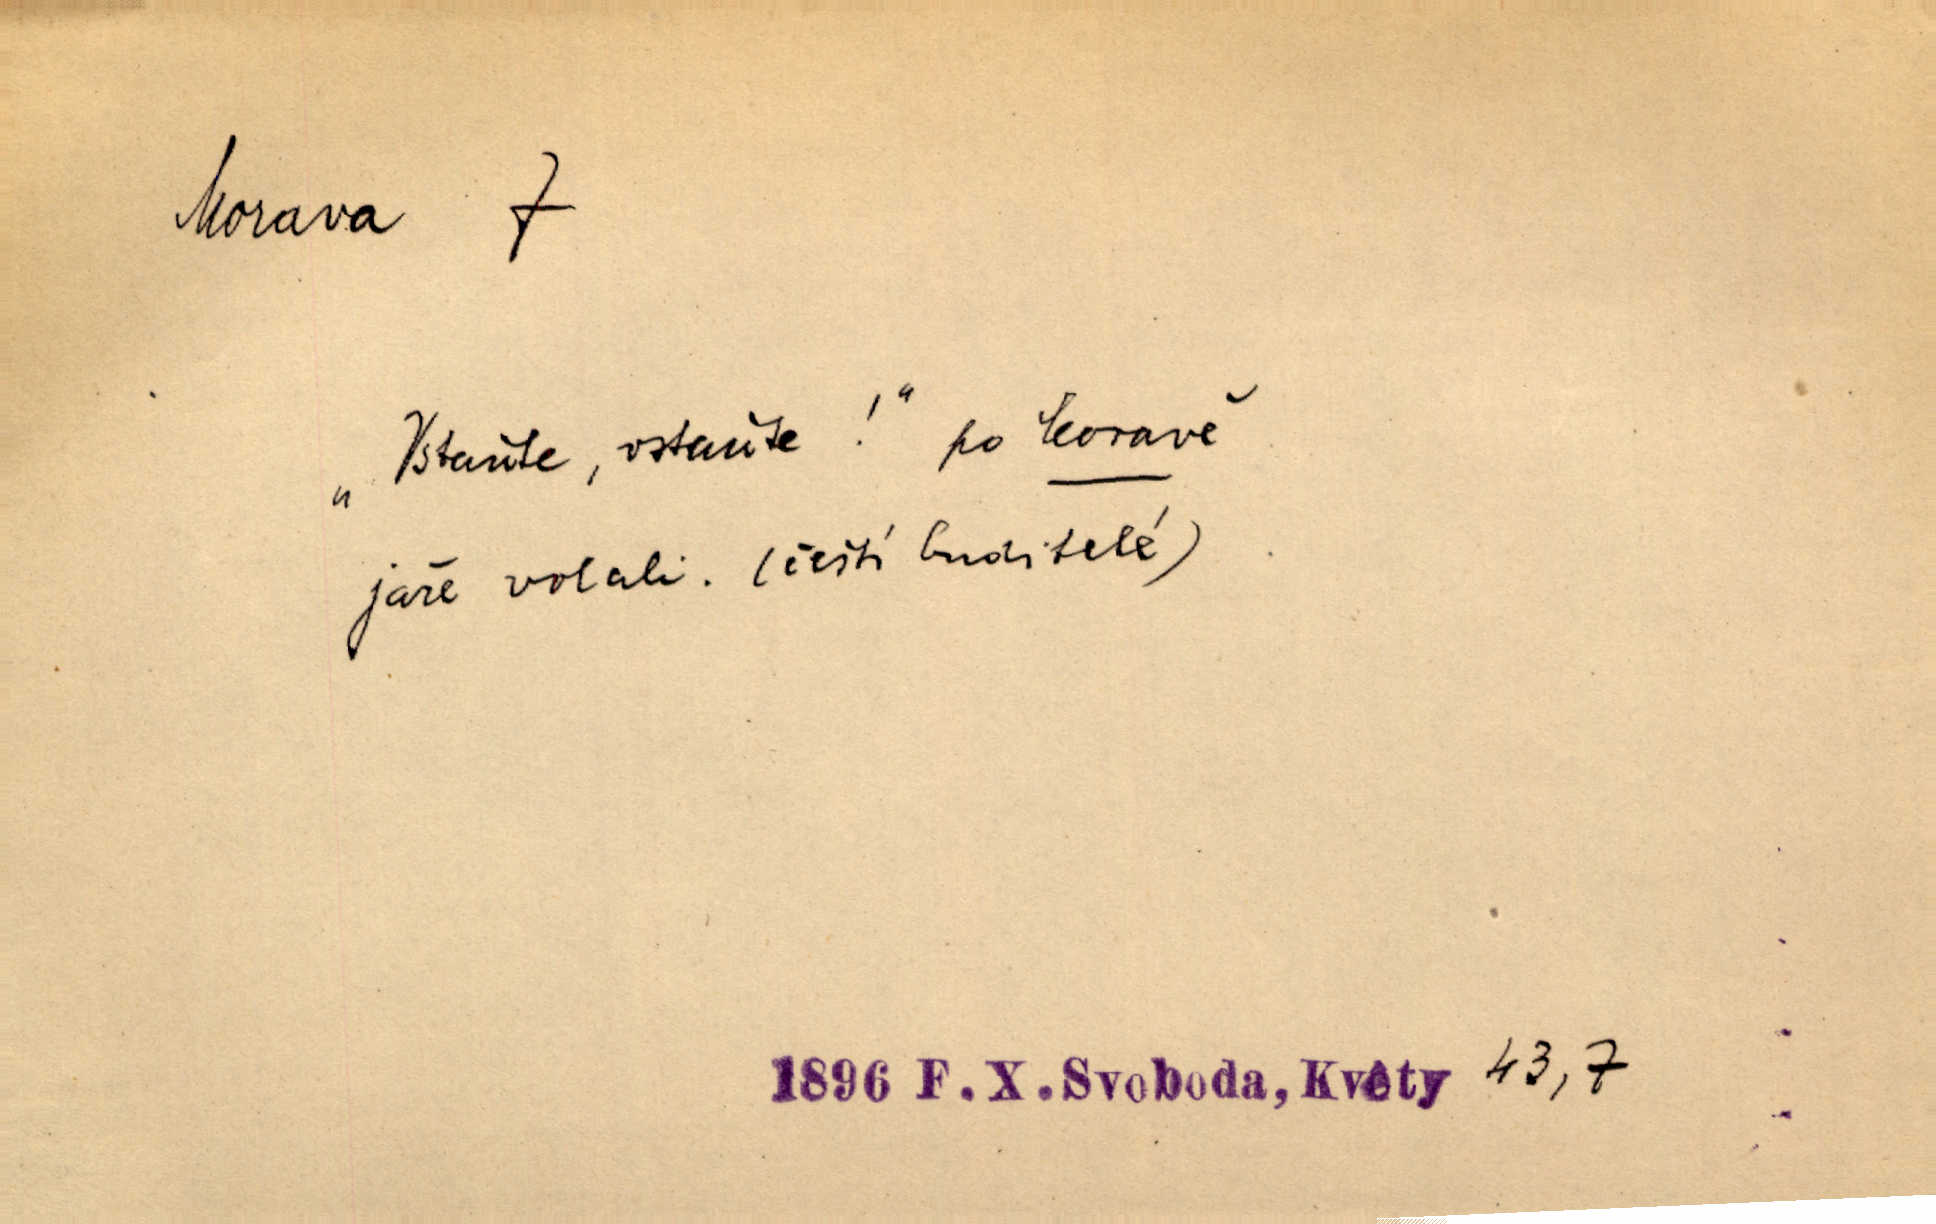 Morava 7
„Vstaňte, vstaňte!“ po Moravě
jaře volali. (čeští buditelé)
1896 F.X.Svoboda, Květy 43,7